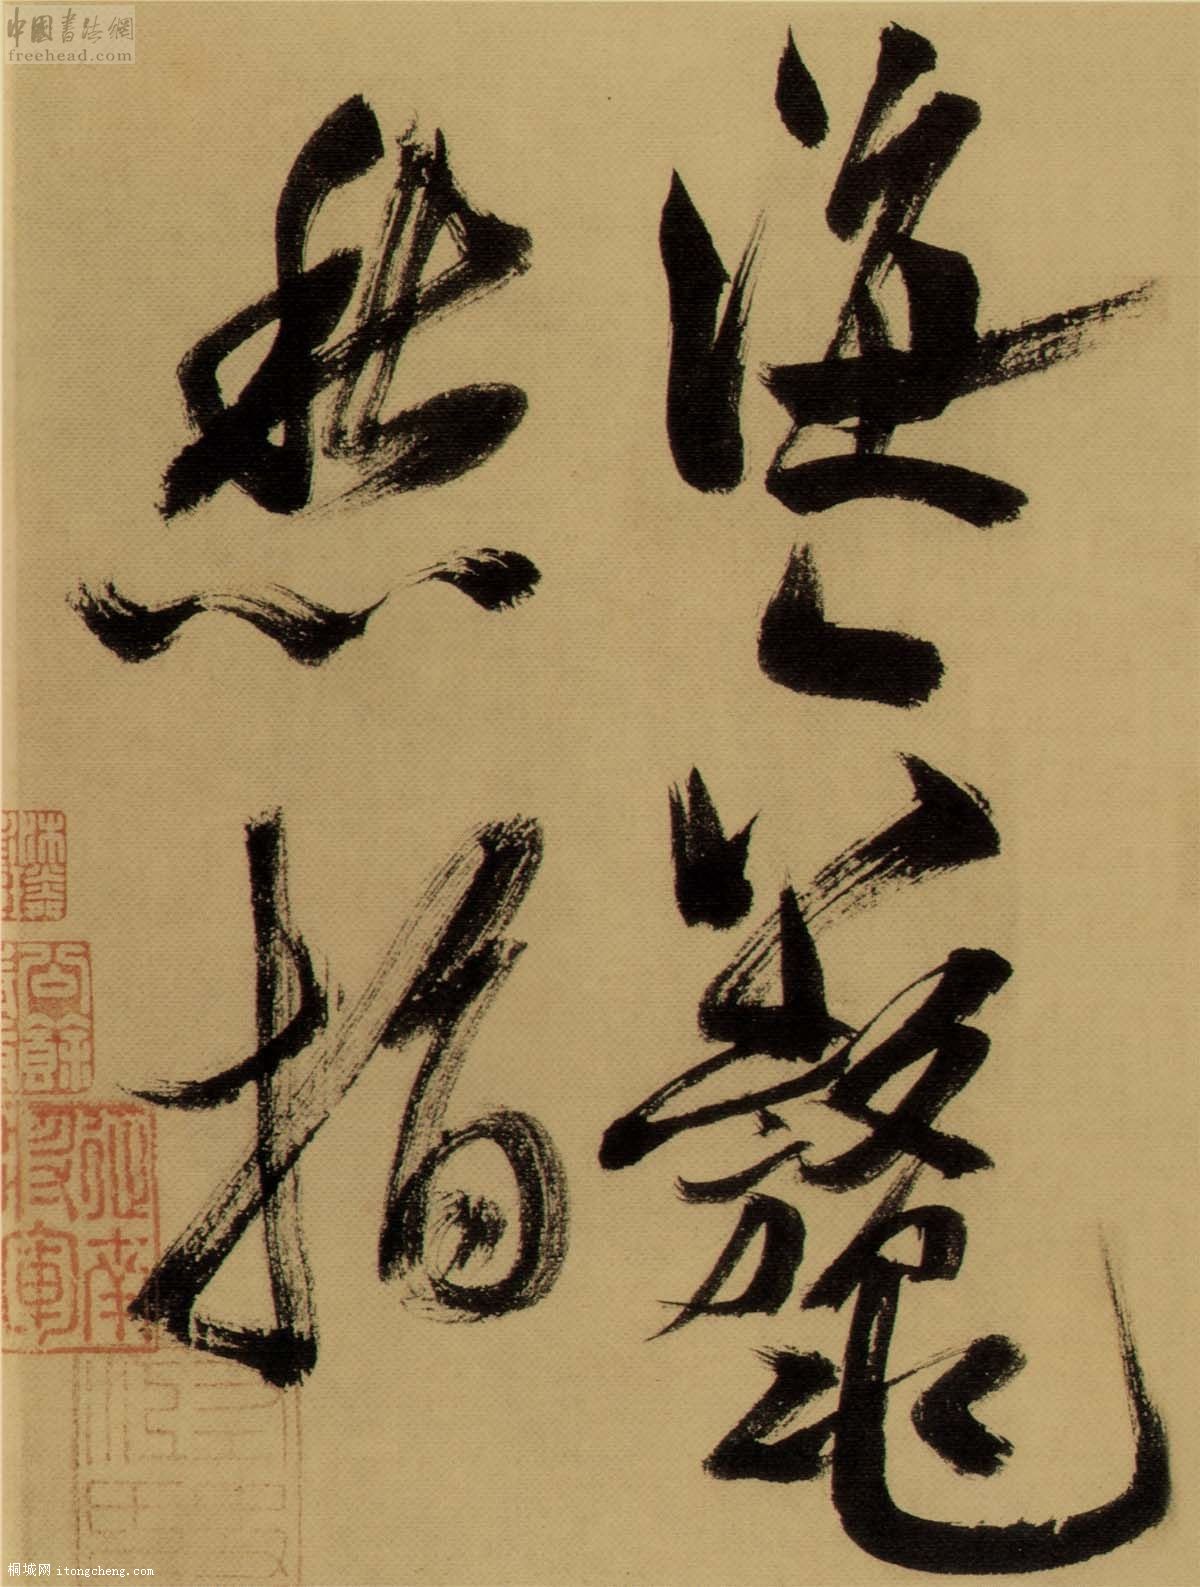 中國書法網
freehead.com
海六鼇
愁指
桐城网 itongcheng.com